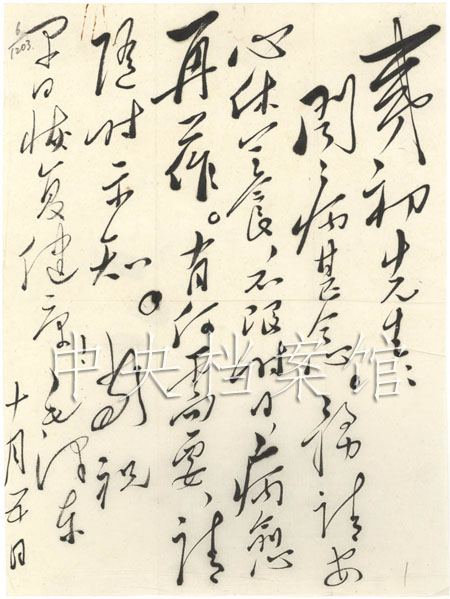 夷初先生：
闻病甚念。务请安
心休养，不限时日，病愈
再作。有何需要、请
随时示知。敬祝
早日恢复健康 毛泽东
十月五日
6
1203
1
中央档案馆